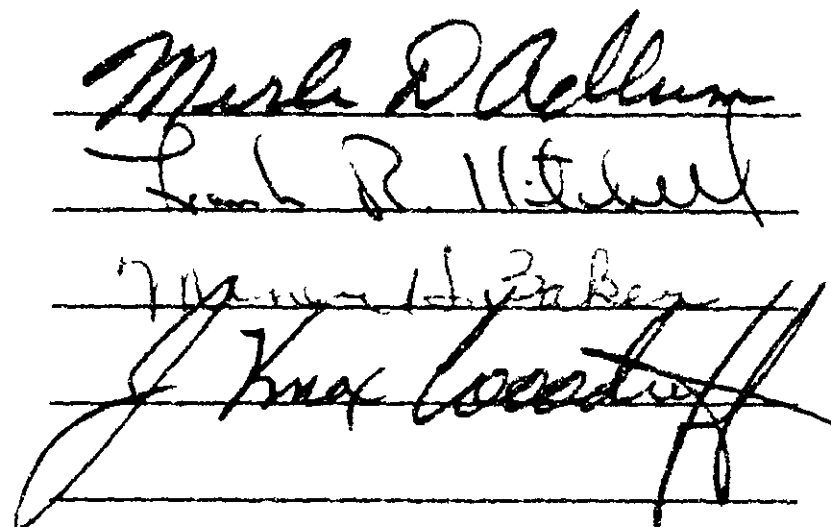 Merle D Adlum
Frank R. Kitchell
Miner H. Baker
J Knox Woodruff